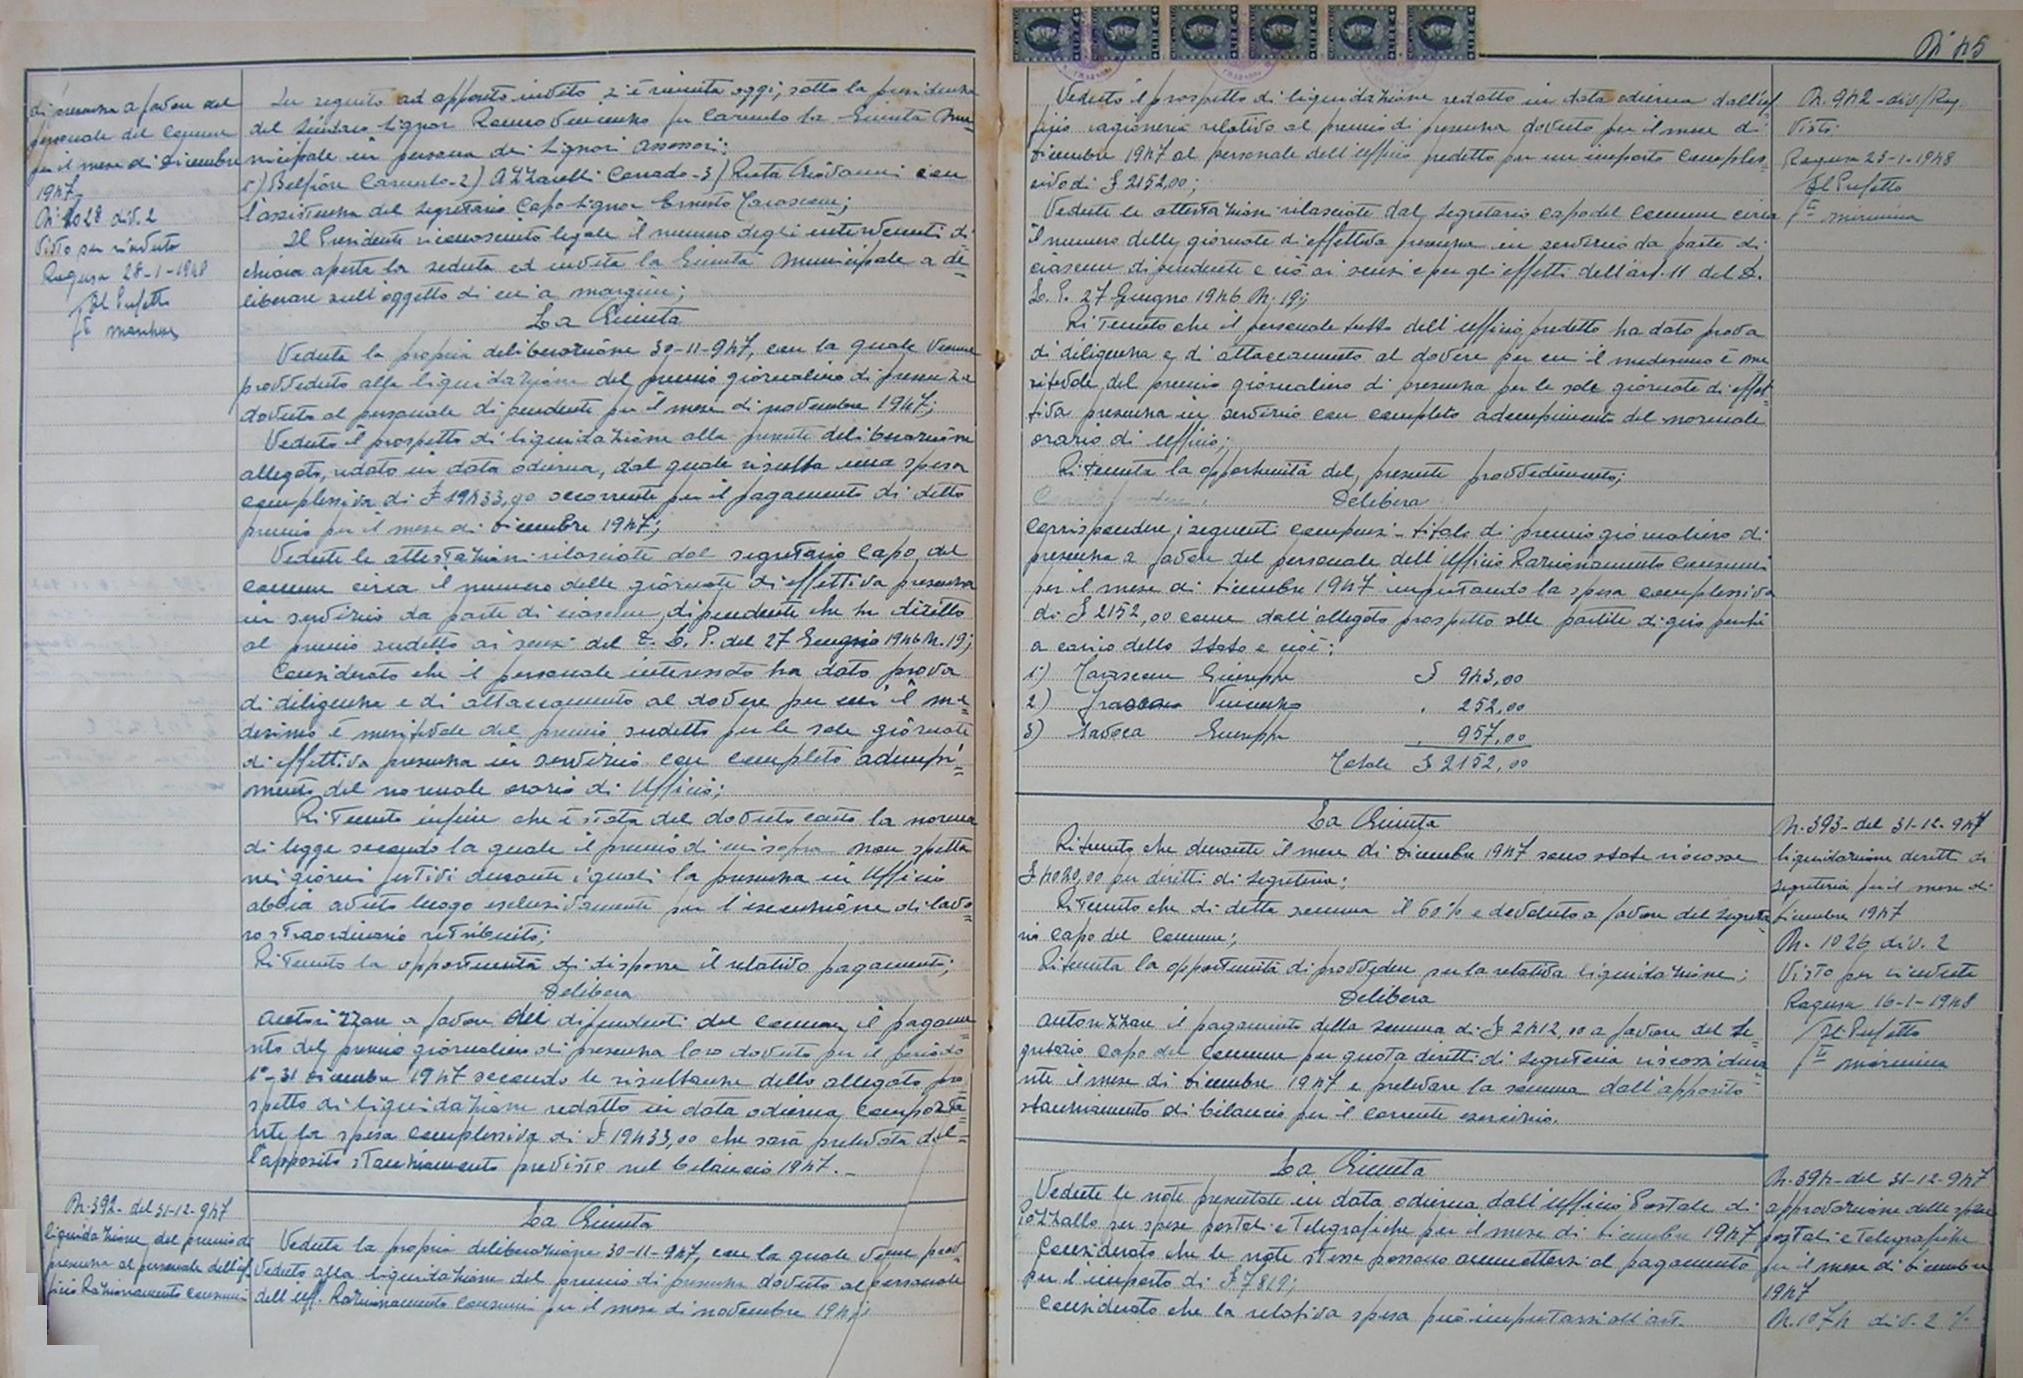 di presenza a favore del
personale del Comune
per il mese di Dicembre
1947
N. 1028 div. 2
Visto per ricevuta
Ragusa 28-1-1948
Il Prefetto
In seguito ad apposito invito si è riunita oggi, sotto la presidenza
del Sindaco Signor per la Giunta Mu-
nicipale in persona dei Signori Assessori:
1) Belfiore Carmelo - 2) Azzarelli Corrado - 3) Ruta Giovanni con
l'assistenza del Segretario Capo Signor Ernesto
Il Presidente riconosciuto legale il numero degli intervenuti di-
chiara aperta la seduta ed invita la Giunta Municipale a de-
liberare sull'oggetto di cui a margine;
La Giunta
Veduta la propria deliberazione 30-11-947, con la quale venne
provveduto alla liquidazione del premio giornaliero di presenza
dovuto al personale dipendente per il mese di novembre 1947;
Veduto il prospetto di liquidazione alla presente deliberazione
allegato, redatto in data odierna, dal quale risulta una spesa
complessiva di £ 19433,00 occorrente per il pagamento di detto
premio per il mese di Dicembre 1947;
Vedute le attestazioni rilasciate dal segretario Capo del
Comune circa il numero delle giornate di effettiva presenza
in servizio da parte di ciascun dipendente che ha diritto
al premio sudetto ai sensi del D. L. P. del 27 Giugno 1946 N. 19;
Considerato che il personale interessato ha dato prova
di diligenza e di attaccamento al dovere per cui il me-
desimo è meritevole del premio sudetto per le sole giornate
di effettiva presenza in servizio con completo adempi-
mento del normale orario di Ufficio;
Ritenuto infine che è stata del dovuto conto la norma
di legge secondo la quale il premio di cui sopra non spetta
nei giorni festivi durante i quali la presenza in Ufficio
abbia avuto luogo esclusivamente per l'esecuzione di lavo-
ro straordinario retribuito;
Ritenuto la opportunità di disporre il relativo pagamento;
Delibera
Autorizzare a favore dei dipendenti del Comune il pagame-
nto del premio giornaliero di presenza loro dovuto per il periodo
1°-31 Dicembre 1947 secondo le risultanze dello allegato pro-
spetto di liquidazione redatto in data odierna, comporta-
nte la spesa complessiva di £ 19433,00 che sarà prelevata dal-
l'apposito stanziamento previsto nel bilancio 1947.-
N. 392- del 31-12-947
liquidazione del premio di
presenza al personale dell'uf-
ficio Razionamento consumi
La Giunta
Veduta la propria deliberazione 30-11-947, con la quale venne prov-
veduto alla liquidazione del premio di presenza dovuto al personale
dell'uff. Razionamento Consumi per il mese di novembre 1947;
N° 45
Veduto il prospetto di liquidazione redatto in data odierna dall'uf-
ficio ragioneria relativo al premio di presenza dovuto per il mese di
Dicembre 1947 al personale dell'Ufficio predetto per un importo comples-
sivo di £ 2152,00;
Vedute le attestazioni rilasciate dal Segretario capo del Comune circa
il numero delle giornate di effettiva presenza in servizio da parte di
ciascun dipendente e ciò ai sensi e per gli effetti dell'art. 11 del D.
L. P. 27 Giugno 1946 N. 19;
Ritenuto che il personale tutto dell'ufficio predetto ha dato prova
di diligenza e di attaccamento al dovere per cui il medesimo è me-
ritevole del premio giornaliero di presenza per le sole giornate di effet-
tiva presenza in servizio con completo adempimento del normale
orario di Ufficio;
Ritenuta la opportunità del presente provvedimento;
Delibera
Corrispondere i seguenti compensi a titolo di premio giornaliero di
presenza a favore del personale dell'Ufficio Razionamento Consumi
per il mese di Dicembre 1947 imputando la spesa complessiva
di £ 2152,00 come dall'allegato prospetto alle partite di giro perchè
a carico dello Stato e cioè:
1) Giuseppe £ 943,00
2) Vincenzo . 252,00
3) Giuseppe . 957,00
Totale £ 2152,00
N. 942-div./Rag.
Visto:
Ragusa 23-1-1948
Il Prefetto
La Giunta
Ritenuto che durante il mese di Dicembre 1947 sono state riscosse
£ 4040,00 per diritti di Segreteria;
Ritenuto che di detta somma il 60% è devoluto a favore del Segreta-
rio capo del Comune;
Ritenuta la opportunità di provvedere per la relativa liquidazione;
Delibera
Autorizzare il pagamento della somma di £ 2412,00 a favore del Se-
gretario capo del Comune per quota diritti di segreteria riscossi dura-
nte il mese di Dicembre 1947 e prelevare la somma dall'apposito
stanziamento di bilancio per il corrente esercizio.
N. 393- del 31-12-947
liquidazione diritti di
segreteria per il mese di
Dicembre 1947
N. 1026 div. 2
Visto per ricevuta
Ragusa 16-1-1948
Il Prefetto
La Giunta
Vedute le note presentate in data odierna dall'Ufficio Postale di
Pozzallo per spese postali e telegrafiche per il mese di Dicembre 1947
Considerato che le note stesse possono ammettersi al pagamento
per l'importo di £ 7819;
Considerato che la relativa spesa può imputarsi all'art.
N. 394- del 31-12-947
approvazione delle spese
postali e telegrafiche
per il mese di Dicembre
1947
N. 1074 div. 2